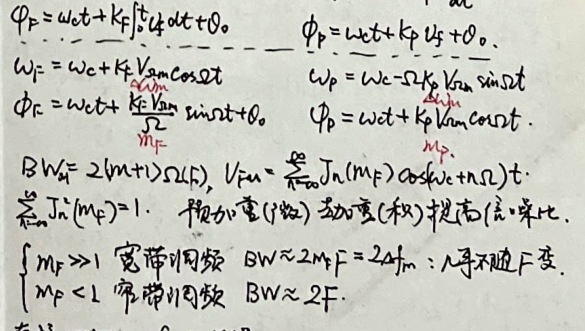 φ_F = ω_c t + K_F ∫_0^t U_f dt + θ_0    φ_P = ω_c t + K_P U_f + θ_0.
ω_F = ω_c + K_F V_Ωm cosΩt    ω_P = ω_c - Ω K_P V_Ωm sinΩt
Δω_m    Δω_m
φ_F = ω_c t + (K_F V_Ωm / Ω) sinΩt + θ_0    φ_P = ω_c t + K_P V_Ωm cosΩt.
m_F    m_P.
BW = 2(m+1)Ω(F), U_FM = Σ_{n=-∞}^{∞} J_n(m_F) cos(ω_c + nΩ)t.
Σ_{n=-∞}^{∞} J_n²(m_F) = 1. 预加重(微) 去加重(积) 提高信噪比.
m_F ≫ 1 宽带调频 BW ≈ 2m_F F = 2Δf_m : 几乎不随F变.
m_F < 1 窄带调频 BW ≈ 2F.